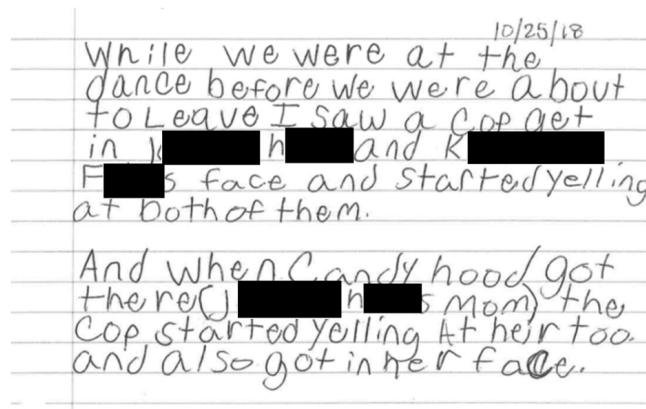 10/25/18
While we were at the
dance before we were about
to Leave I saw a Cop get
in h and K
F s face and started yelling
at both of them.
And when Candy hood got
there(J h s Mom) the
Cop started yelling At heir too.
and also got in her face.